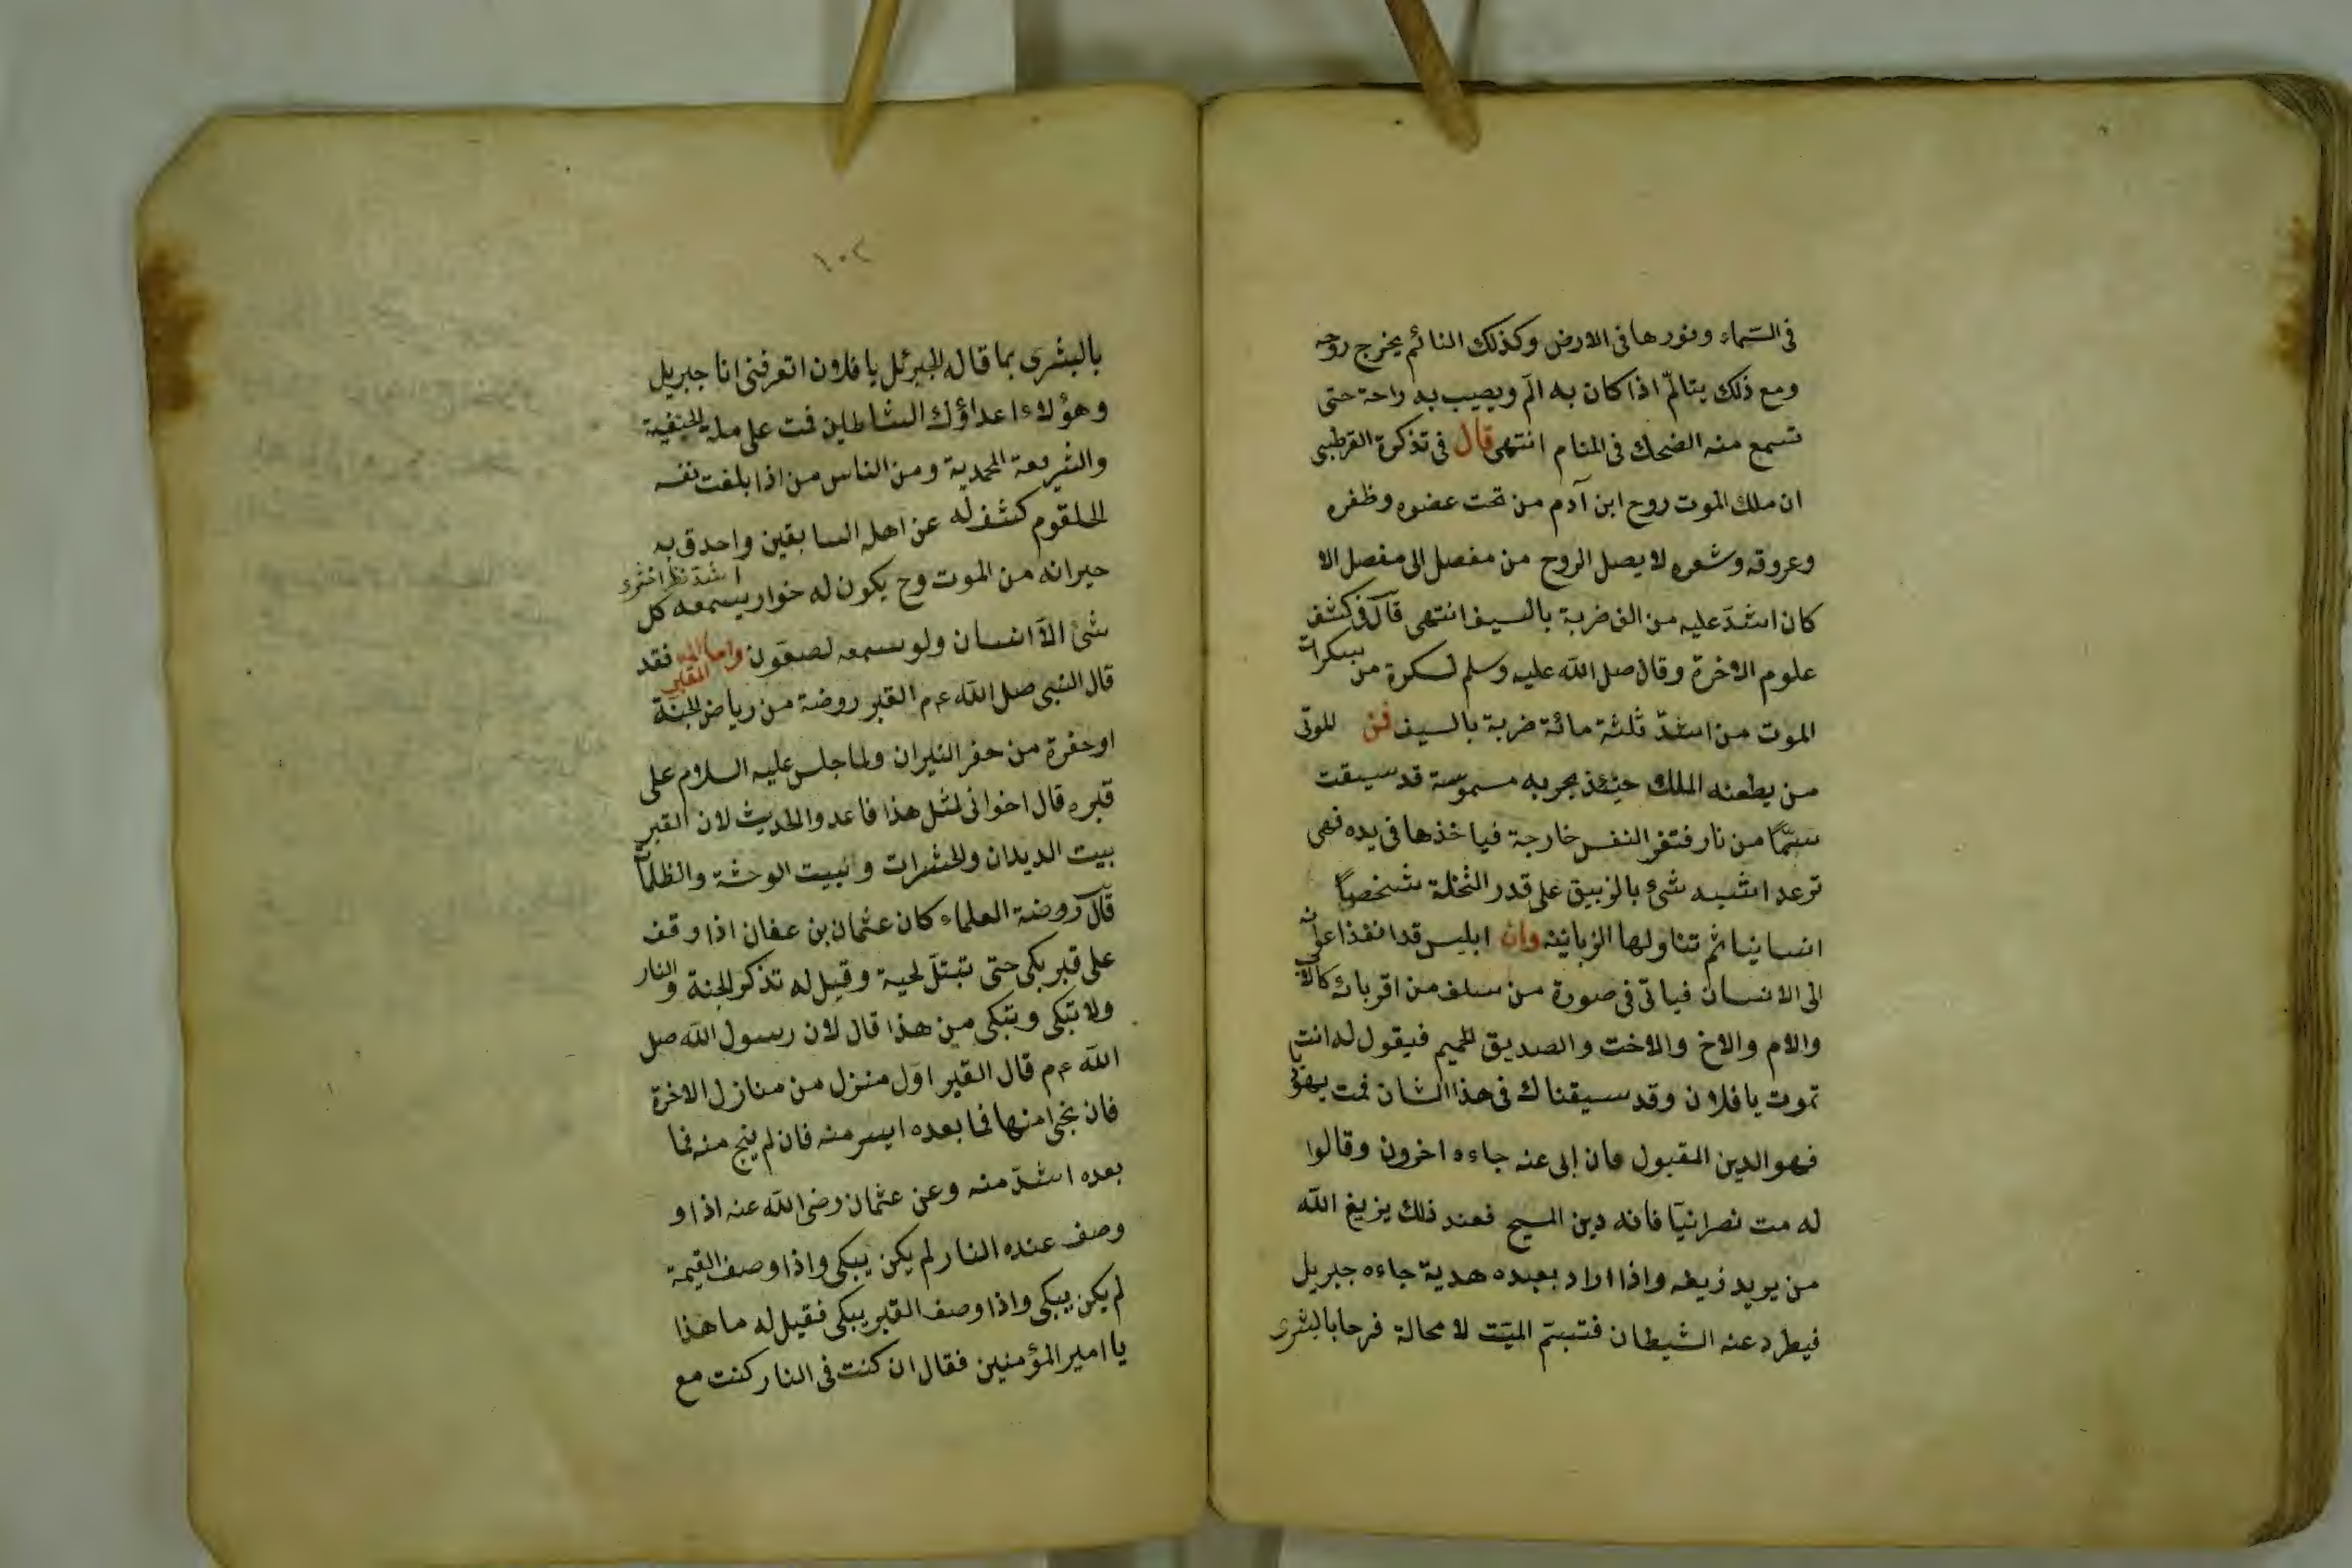 في السماء ونورها في الارض وكذلك النائم يخرج روحه
ومع ذلك يتالم اذا كان به الم ويصيب به راحة حتى
تسمع منه الضحك في المنام انتهى قال في تذكرة القرطبي
ان ملك الموت روح ابن آدم من تحت عضوه وظفره
وعروقه وشعره لا يصل الروح من مفصل الى مفصل الا
كان اشدّ عليه من الف ضربة بالسيف انتهى قال في كشف
علوم الاخرة وقال صلى الله عليه وسلم لسكرة من سكرات
الموت من اشدّ ثلثة مائة ضربة بالسيف فمن الموتى
من يطعنه الملك حينئذ بحربه مسمومة قد سيقت
سمّا من نار فتفر النفس خارجة فياخذها في يده فهى
ترعد اشبه شئ بالزيبق على قدر النخلة شخصا
انسانيا ثم تناولها الزبانية وان ابليس قد انفذ اعوانه
الى الانسان فياتى في صورة من سلف من اقربائه كالاب
والام والاخ والاخت والصديق الحميم فيقول له انت
تموت يا فلان وقد سيقناك في هذا الشان فمت يهوديا
فهو الدين المقبول فان ابى عنه جاءه اخرون وقالوا
له مت نصرانيّا فانه دين المسيح فعند ذلك يزيغ الله
من يريد زيغه واذا اراد بعبده هدية جاءه جبريل
فيطرد عنه الشيطان فتبسّم الميّت لا محالة فرحا بالبشرى
١٠٢
بالبشرى بما قال له الجبرئل يا فلان اتعرفني انا جبريل
وهؤلاء اعداؤك الشاطين فمت على ملة الحنيفية
والشريعة المحمدية ومن الناس من اذا بلغت نفسه
الحلقوم كشف له عن اهله السابقين واحدق به
جيرانه من الموت وح يكون له خوار يسمعه كل
شئ الا انسان ولو سمعه لصعقون واما القبر فقد
قال النبي صلى الله ع م القبر روضة من رياض الجنة
او حفرة من حفر النيران ولما جلس عليه السلام على
قبره قال اخوانى لمثل هذا فاعدوا الحديث لان القبر
بيت الديدان والحشرات وبيت الوحشة والظلمات
قال روضة العلماء كان عثمان بن عفان اذا وقف
على قبر بكى حتى تبتلّ لحية وقيل له تذكر الجنة والنار
ولا تبكى وتبكى من هذا قال لان رسول الله صلى
الله ع م قال القبر اول منزل من منازل الاخرة
فان نجى منها فما بعده ايسر منه فان لم ينج منه فما
بعده اشدّ منه وعن عثمان رضى الله عنه اذا و
وصف عنده النار لم يكن يبكى واذا وصف القيمة
لم يكن يبكى واذا وصف القبر يبكى فقيل له ما هذا
يا امير المؤمنين فقال ان كنت في النار كنت مع